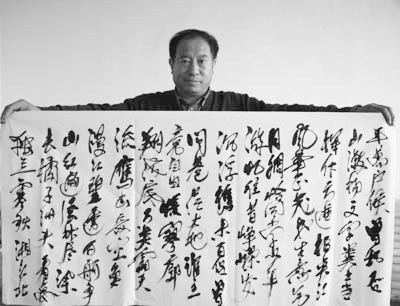 独立寒秋湘江北
去橘子洲头看万
山红遍层林尽染
漫江碧透百舸争
流鹰击长空鱼
翔浅底万类霜天
竞自由怅寥廓
问苍茫大地谁主
沉浮携来百侣曾
游忆往昔峥嵘岁
月稠恰同学少年
风华正茂书生意气
挥斥方遒指点江
山激扬文字粪土当
年万户侯曾记否